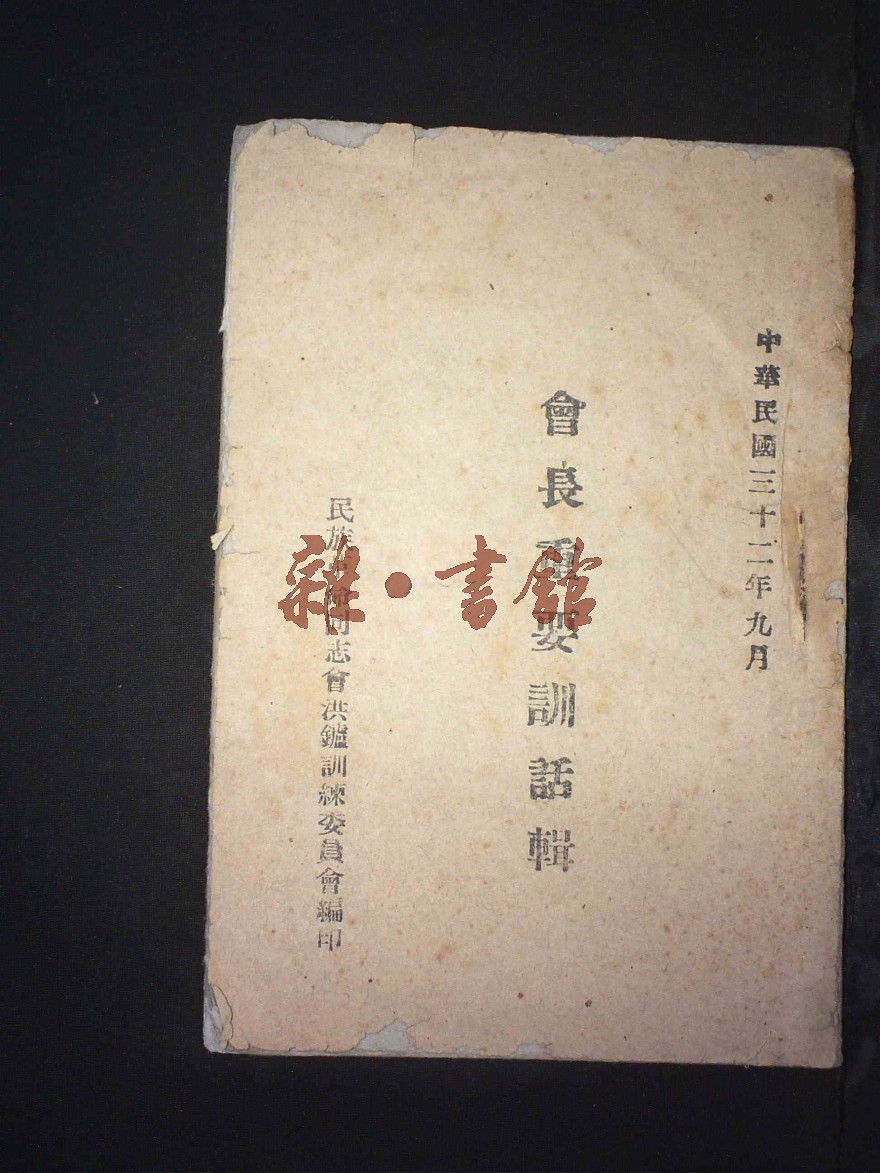 中華民國三十二年九月
會長重要訓話輯
民族革命同志會洪鑪訓練委員會編印
雜·書館